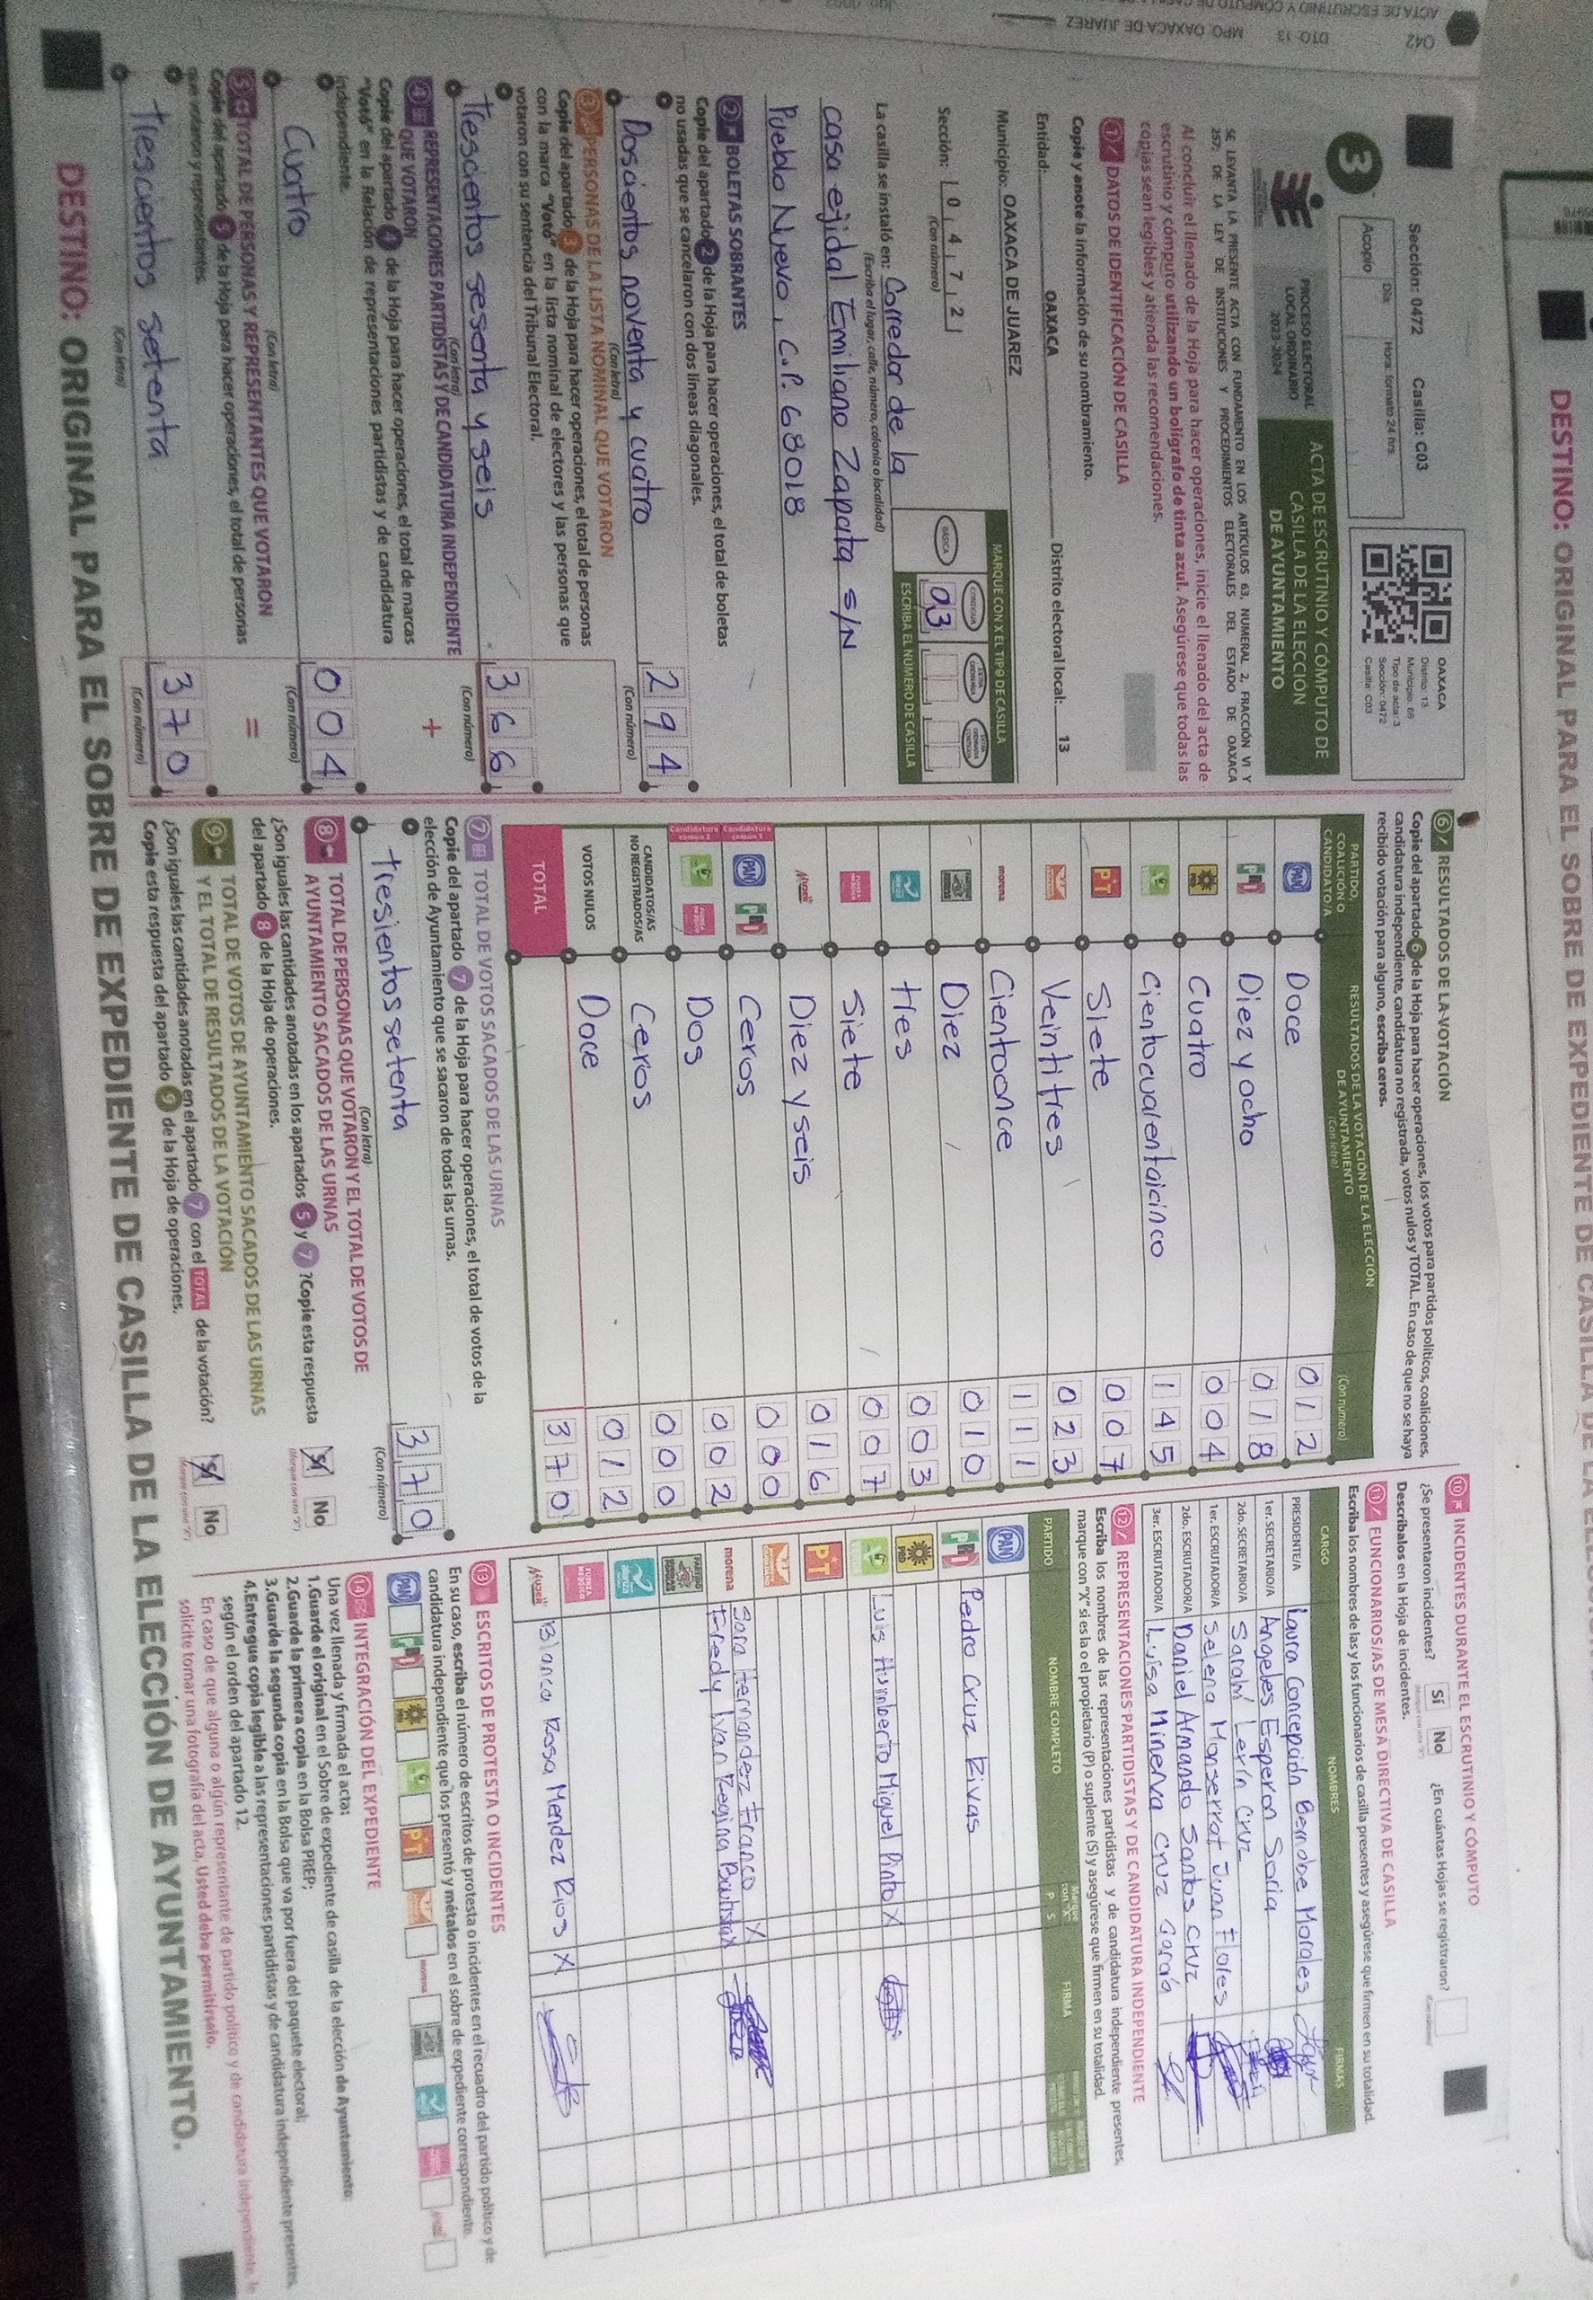 DESTINO: ORIGINAL PARA EL SOBRE DE EXPEDIENTE DE CASILLA DE LA
Sección: 0472 Casilla: C03
Día: Hora: formato 24 hrs.
Acopio
3
OAXACA
Distrito: 13
Municipio: 68
Tipo de acta: 3
Sección: 0472
Casilla: C03
PROCESO ELECTORAL
LOCAL ORDINARIO
2023-2024
ACTA DE ESCRUTINIO Y CÓMPUTO DE
CASILLA DE LA ELECCIÓN
DE AYUNTAMIENTO
SE LEVANTA LA PRESENTE ACTA CON FUNDAMENTO EN LOS ARTÍCULOS 63, NUMERAL 2, FRACCIÓN VI Y
257; DE LA LEY DE INSTITUCIONES Y PROCEDIMIENTOS ELECTORALES DEL ESTADO DE OAXACA
Al concluir el llenado de la Hoja para hacer operaciones, inicie el llenado del acta de
escrutinio y cómputo utilizando un bolígrafo de tinta azul. Asegúrese que todas las
copias sean legibles y atienda las recomendaciones.
1 DATOS DE IDENTIFICACIÓN DE CASILLA
Copie y anote la información de su nombramiento.
Entidad: OAXACA Distrito electoral local: 13
Municipio: OAXACA DE JUAREZ
Sección: 0 4 7 2
(Con número)
MARQUE CON X EL TIPO DE CASILLA
BÁSICA CONTIGUA
03
ESCRIBA EL NÚMERO DE CASILLA
La casilla se instaló en: Corredor de la
(Escriba el lugar, calle, número, colonia o localidad)
casa ejidal Emiliano Zapata S/N
Pueblo Nuevo, C.P. 68018
2 BOLETAS SOBRANTES
Copie del apartado 2 de la Hoja para hacer operaciones, el total de boletas
no usadas que se cancelaron con dos líneas diagonales.
Doscientos noventa y cuatro 2 9 4
(Con letra) (Con número)
3 PERSONAS DE LA LISTA NOMINAL QUE VOTARON
Copie del apartado 3 de la Hoja para hacer operaciones, el total de personas
con la marca "Votó" en la lista nominal de electores y las personas que
votaron con su sentencia del Tribunal Electoral.
Trescientos sesenta y seis 3 6 6
(Con letra) (Con número)
4 REPRESENTACIONES PARTIDISTAS Y DE CANDIDATURA INDEPENDIENTE
QUE VOTARON
+
Copie del apartado 4 de la Hoja para hacer operaciones, el total de marcas
"Votó" en la Relación de representaciones partidistas y de candidatura
independiente.
Cuatro 0 0 4
(Con letra) (Con número)
5 TOTAL DE PERSONAS Y REPRESENTANTES QUE VOTARON
=
Copie del apartado 5 de la Hoja para hacer operaciones, el total de personas
que votaron y representantes.
trescientos setenta 3 7 0
(Con letra) (Con número)
6 RESULTADOS DE LA VOTACIÓN
Copie del apartado 6 de la Hoja para hacer operaciones, los votos para partidos políticos, coaliciones,
candidatura independiente, candidatura no registrada, votos nulos y TOTAL. En caso de que no se haya
recibido votación para alguno, escriba ceros.
PARTIDO, COALICIÓN O CANDIDATO/A
RESULTADOS DE LA VOTACIÓN DE LA ELECCIÓN DE AYUNTAMIENTO
(Con letra) (Con número)
PAN Doce 0 1 2
PRI Diez y ocho 0 1 8
PRD Cuatro 0 0 4
Cientocuarentaicinco 1 4 5
PT Siete 0 0 7
Veintitres 0 2 3
morena Cientoonce 1 1 1
Diez 0 1 0
tres 0 0 3
Siete 0 0 7
MUJER Diez y seis 0 1 6
Candidatura común 1 PAN PRI Ceros 0 0 0
Candidatura común 2 Dos 0 0 2
CANDIDATOS/AS NO REGISTRADOS/AS Ceros 0 0 0
VOTOS NULOS Doce 0 1 2
TOTAL 3 7 0
7 TOTAL DE VOTOS SACADOS DE LAS URNAS
Copie del apartado 7 de la Hoja para hacer operaciones, el total de votos de la
elección de Ayuntamiento que se sacaron de todas las urnas.
tresientos setenta 3 7 0
(Con letra) (Con número)
8 TOTAL DE PERSONAS QUE VOTARON Y EL TOTAL DE VOTOS DE
AYUNTAMIENTO SACADOS DE LAS URNAS
¿Son iguales las cantidades anotadas en los apartados 5 y 7? Copie esta respuesta
del apartado 8 de la Hoja de operaciones.
Sí No
9 TOTAL DE VOTOS DE AYUNTAMIENTO SACADOS DE LAS URNAS
Y EL TOTAL DE RESULTADOS DE LA VOTACIÓN
¿Son iguales las cantidades anotadas en el apartado 7 con el TOTAL de la votación?
Copie esta respuesta del apartado 9 de la Hoja de operaciones.
Sí No
10 INCIDENTES DURANTE EL ESCRUTINIO Y CÓMPUTO
¿Se presentaron incidentes? Sí No ¿En cuántas Hojas se registraron?
Descríbalos en la Hoja de incidentes.
11 FUNCIONARIOS/AS DE MESA DIRECTIVA DE CASILLA
Escriba los nombres de las y los funcionarios de casilla presentes y asegúrese que firmen en su totalidad.
CARGO NOMBRES FIRMAS
PRESIDENTE/A Laura Concepción Bemdoe Morales
1er. SECRETARIO/A Angeles Esperon Soria
2do. SECRETARIO/A Sarahí Lerín Cruz
1er. ESCRUTADOR/A Selena Monserrat Juan Flores
2do. ESCRUTADOR/A Daniel Armando Santos Cruz
3er. ESCRUTADOR/A Luisa Minerva Cruz García
12 REPRESENTACIONES PARTIDISTAS Y DE CANDIDATURA INDEPENDIENTE
Escriba los nombres de las representaciones partidistas y de candidatura independiente presentes,
marque con "X" si es la o el propietario (P) o suplente (S) y asegúrese que firmen en su totalidad.
PARTIDO NOMBRE COMPLETO Marque con "X" P S FIRMA
PAN
PRI Pedro Cruz Rivas
PRD
Luis Humberto Miguel Pinto X
PT
morena Sara Hernandez Franco X
Fredy Ivan Regina Bautista X
MUJER Blanca Rosa Mendez Rios X
13 ESCRITOS DE PROTESTA O INCIDENTES
En su caso, escriba el número de escritos de protesta o incidentes en el recuadro del partido político y de
candidatura independiente que los presentó y métalos en el sobre de expediente correspondiente.
PAN PRI PRD PT morena
14 INTEGRACIÓN DEL EXPEDIENTE
Una vez llenada y firmada el acta:
1.Guarde el original en el Sobre de expediente de casilla de la elección de Ayuntamiento;
2.Guarde la primera copia en la Bolsa PREP;
3.Guarde la segunda copia en la Bolsa que va por fuera del paquete electoral;
4.Entregue copia legible a las representaciones partidistas y de candidatura independiente presentes,
según el orden del apartado 12.
En caso de que alguna o algún representante de partido político y de candidatura independiente, le
solicite tomar una fotografía del acta, Usted debe permitírselo.
DESTINO: ORIGINAL PARA EL SOBRE DE EXPEDIENTE DE CASILLA DE LA ELECCIÓN DE AYUNTAMIENTO.
042 DTO. 13 MPO. OAXACA DE JUAREZ